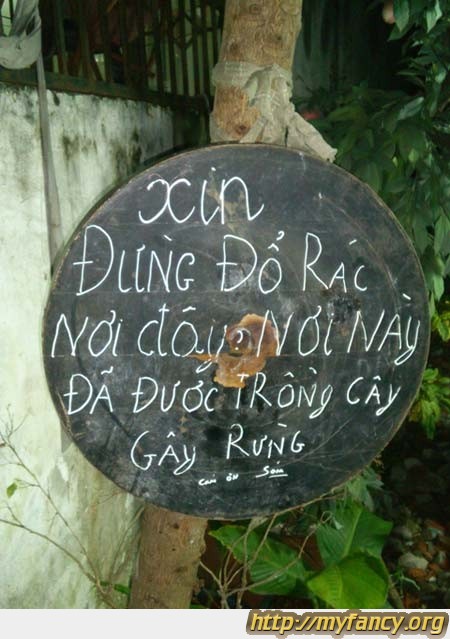 xin
ĐỪNG ĐỔ RÁC
Nơi đây, NƠI NÀY
ĐÃ ĐƯỢC TRỒNG CÂY
GÂY RỪNG
cảm ơn
http://myfancy.org